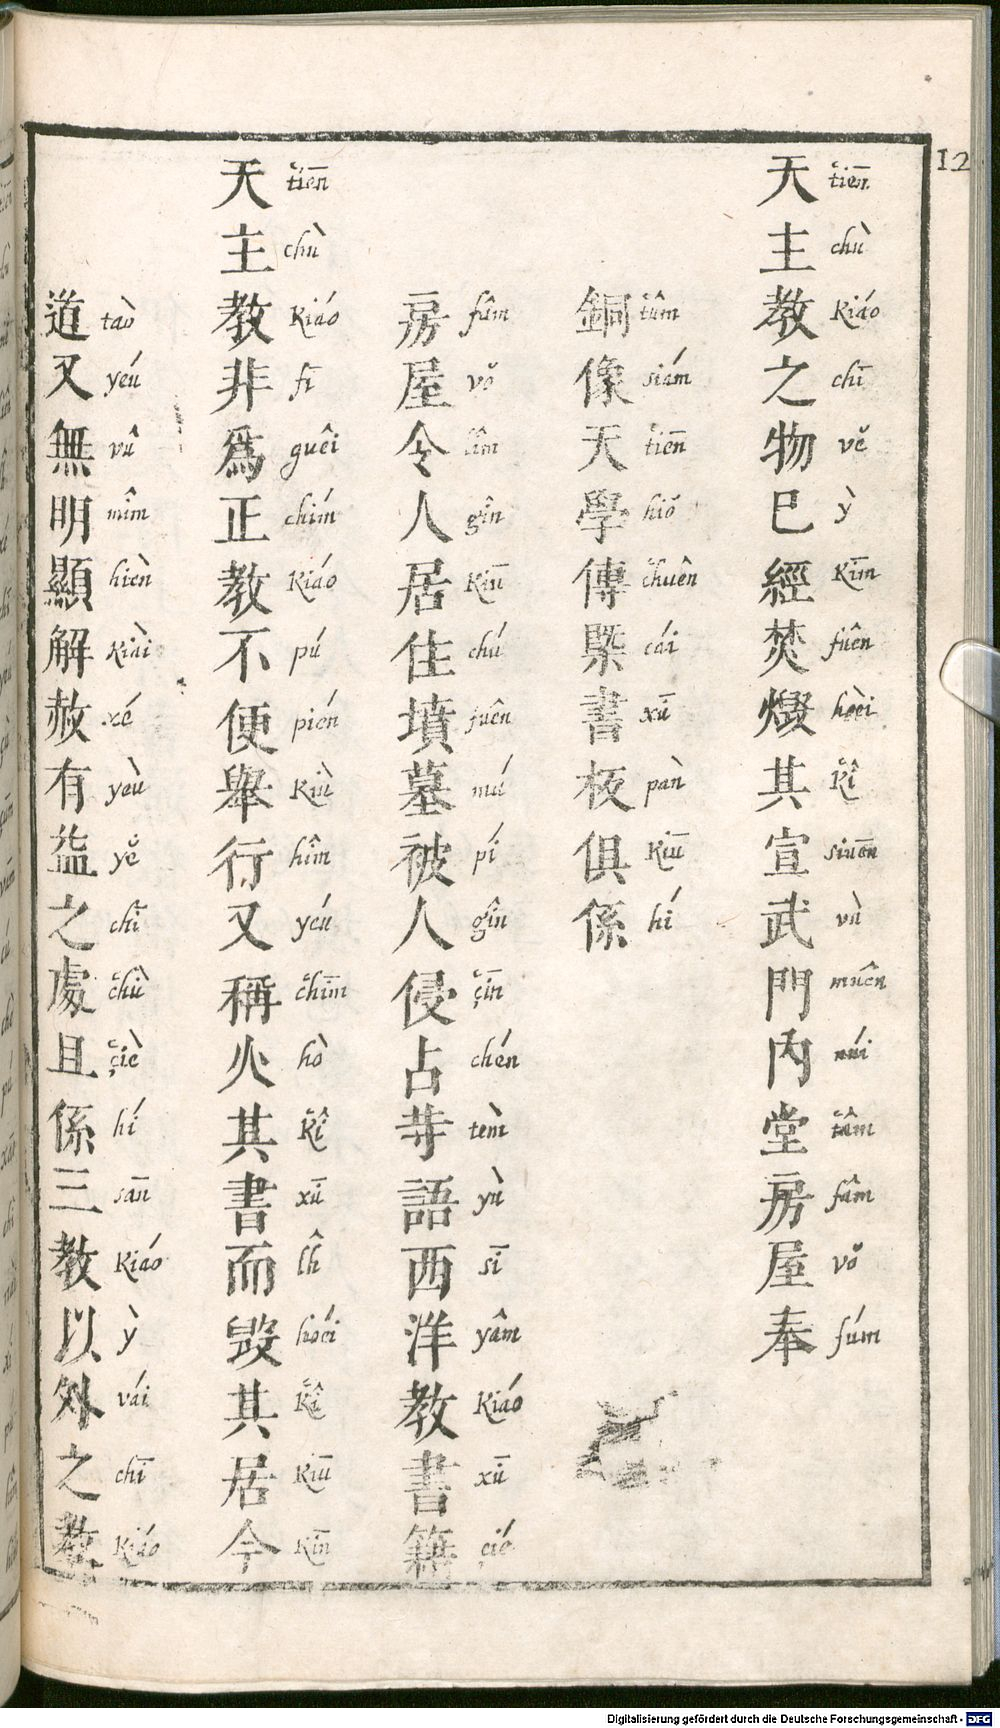 12
天主教之物巳經焚燬其宣武門内堂房屋奉
tiēn chù Kiáo chī vĕ ỳ Kīm fuên hoèi Kî siuēn vù muên núi tâm fâm vŏ fúm
銅像天學傳槩書板俱係
tûm siám tiēn hiŏ chuên cái xū pàn Kiū hí
房屋令人居住墳墓被人侵占䓁語西洋教書籍
fâm vŏ gîn Kiū chú fuên mú pí gîn çīn chén tèm yù sī yâm Kiáo xū
天主教非爲正教不便舉行又稱火其書而毁其居今
tiēn chù Kiáo fī guêi chím Kiáo pú pién Kiù hîm yéu chīm hò Kî xū lh̑ hoèi Kî Kiū Kīn
道又無明顯解赦有益之處且係三教以外之教
taò yéu vû mîm hièn Kiài xé yèu yĕ chī chù çiè hí sān Kiáo ỳ vái chī Kiáo
Digitalisierung gefördert durch die Deutsche Forschungsgemeinschaft - DFG